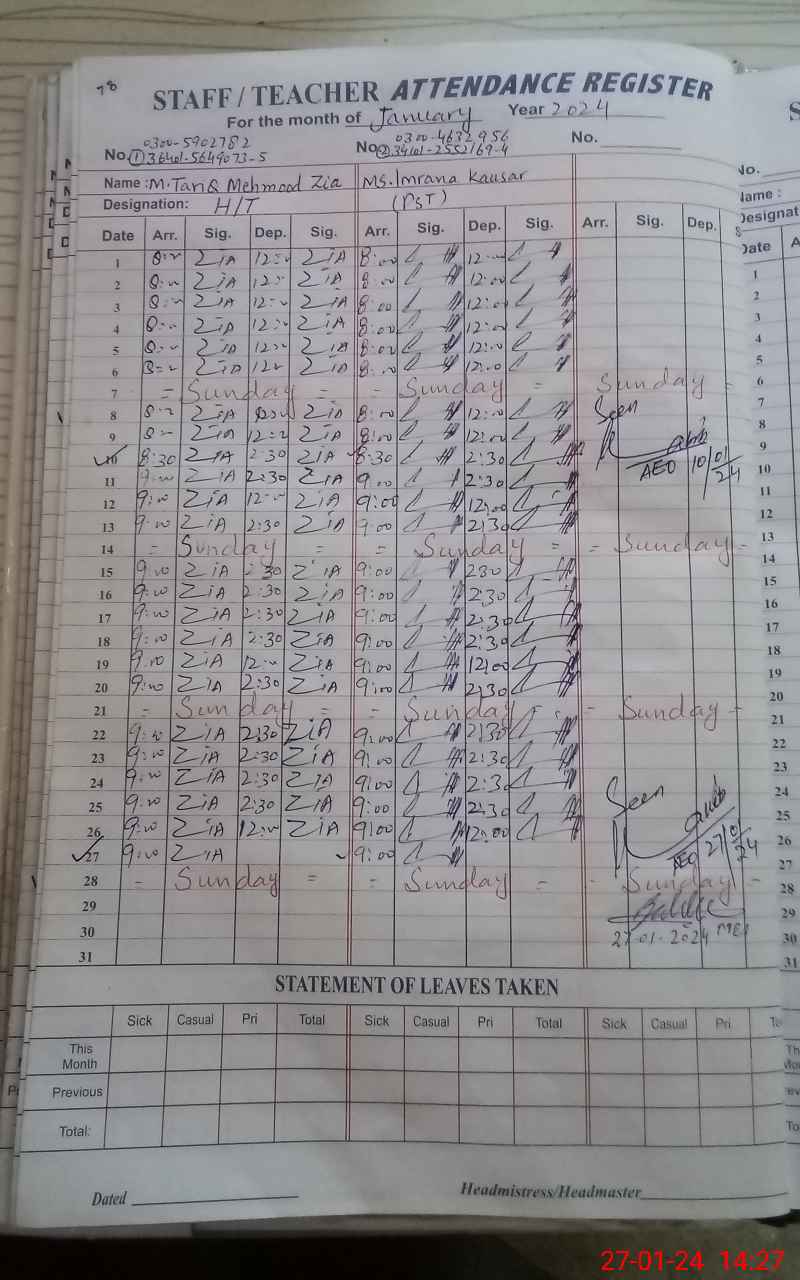 78
STAFF / TEACHER ATTENDANCE REGISTER
For the month of January Year 2024
0300-5902782 0300-4632956
No. ① 36401-5649073-5 No ② 34101-2552169-4 No.
Name : M. Tariq Mehmood Zia Ms. Imrana Kausar
Designation: H/T (PST)
Date Arr. Sig. Dep. Sig. Arr. Sig. Dep. Sig. Arr. Sig. Dep.
1 8:00 ZiA 12:00 ZiA 8:00 12:00
2 8:00 ZiA 12:00 ZiA 8:00 12:00
3 8:00 ZiA 12:00 ZiA 8:00 12:00
4 8:00 ZiA 12:00 ZiA 8:00 12:00
5 8:00 ZiA 12:00 ZiA 8:00 12:00
6 8:00 ZiA 12:00 ZiA 8:00 12:00
7 = Sunday = = Sunday = Sunday =
8 8:00 ZiA 12:00 ZiA 8:00 12:00 Seen
9 8:00 ZiA 12:00 ZiA 8:00 12:00
10 8:30 ZiA 2:30 ZiA 8:30 2:30 AEO 10/01/24
11 9:00 ZiA 2:30 ZiA 9:00 2:30
12 9:00 ZiA 12:00 ZiA 9:00 12:00
13 9:00 ZiA 2:30 ZiA 9:00 2:30
14 = Sunday = = Sunday = = Sunday =
15 9:00 ZiA 2:30 ZiA 9:00 2:30
16 9:00 ZiA 2:30 ZiA 9:00 2:30
17 9:00 ZiA 2:30 ZiA 9:00 2:30
18 9:00 ZiA 2:30 ZiA 9:00 2:30
19 9:00 ZiA 12:00 ZiA 9:00 12:00
20 9:00 ZiA 2:30 ZiA 9:00 2:30
21 = Sunday = = Sunday = = Sunday -
22 9:00 ZiA 2:30 ZiA 9:00 2:30
23 9:00 ZiA 2:30 ZiA 9:00 2:30
24 9:00 ZiA 2:30 ZiA 9:00 2:30
25 9:00 ZiA 2:30 ZiA 9:00 2:30 Seen
26 9:00 ZiA 12:00 ZiA 9:00 12:00
27 9:00 ZiA 9:00 AEO 27/01/24
28 = Sunday = = Sunday = - Sunday -
29
30 27-01-2024
31
STATEMENT OF LEAVES TAKEN
Sick Casual Pri Total Sick Casual Pri Total Sick Casual Pri
This Month
Previous
Total:
Dated Headmistress/Headmaster
27-01-24 14:27